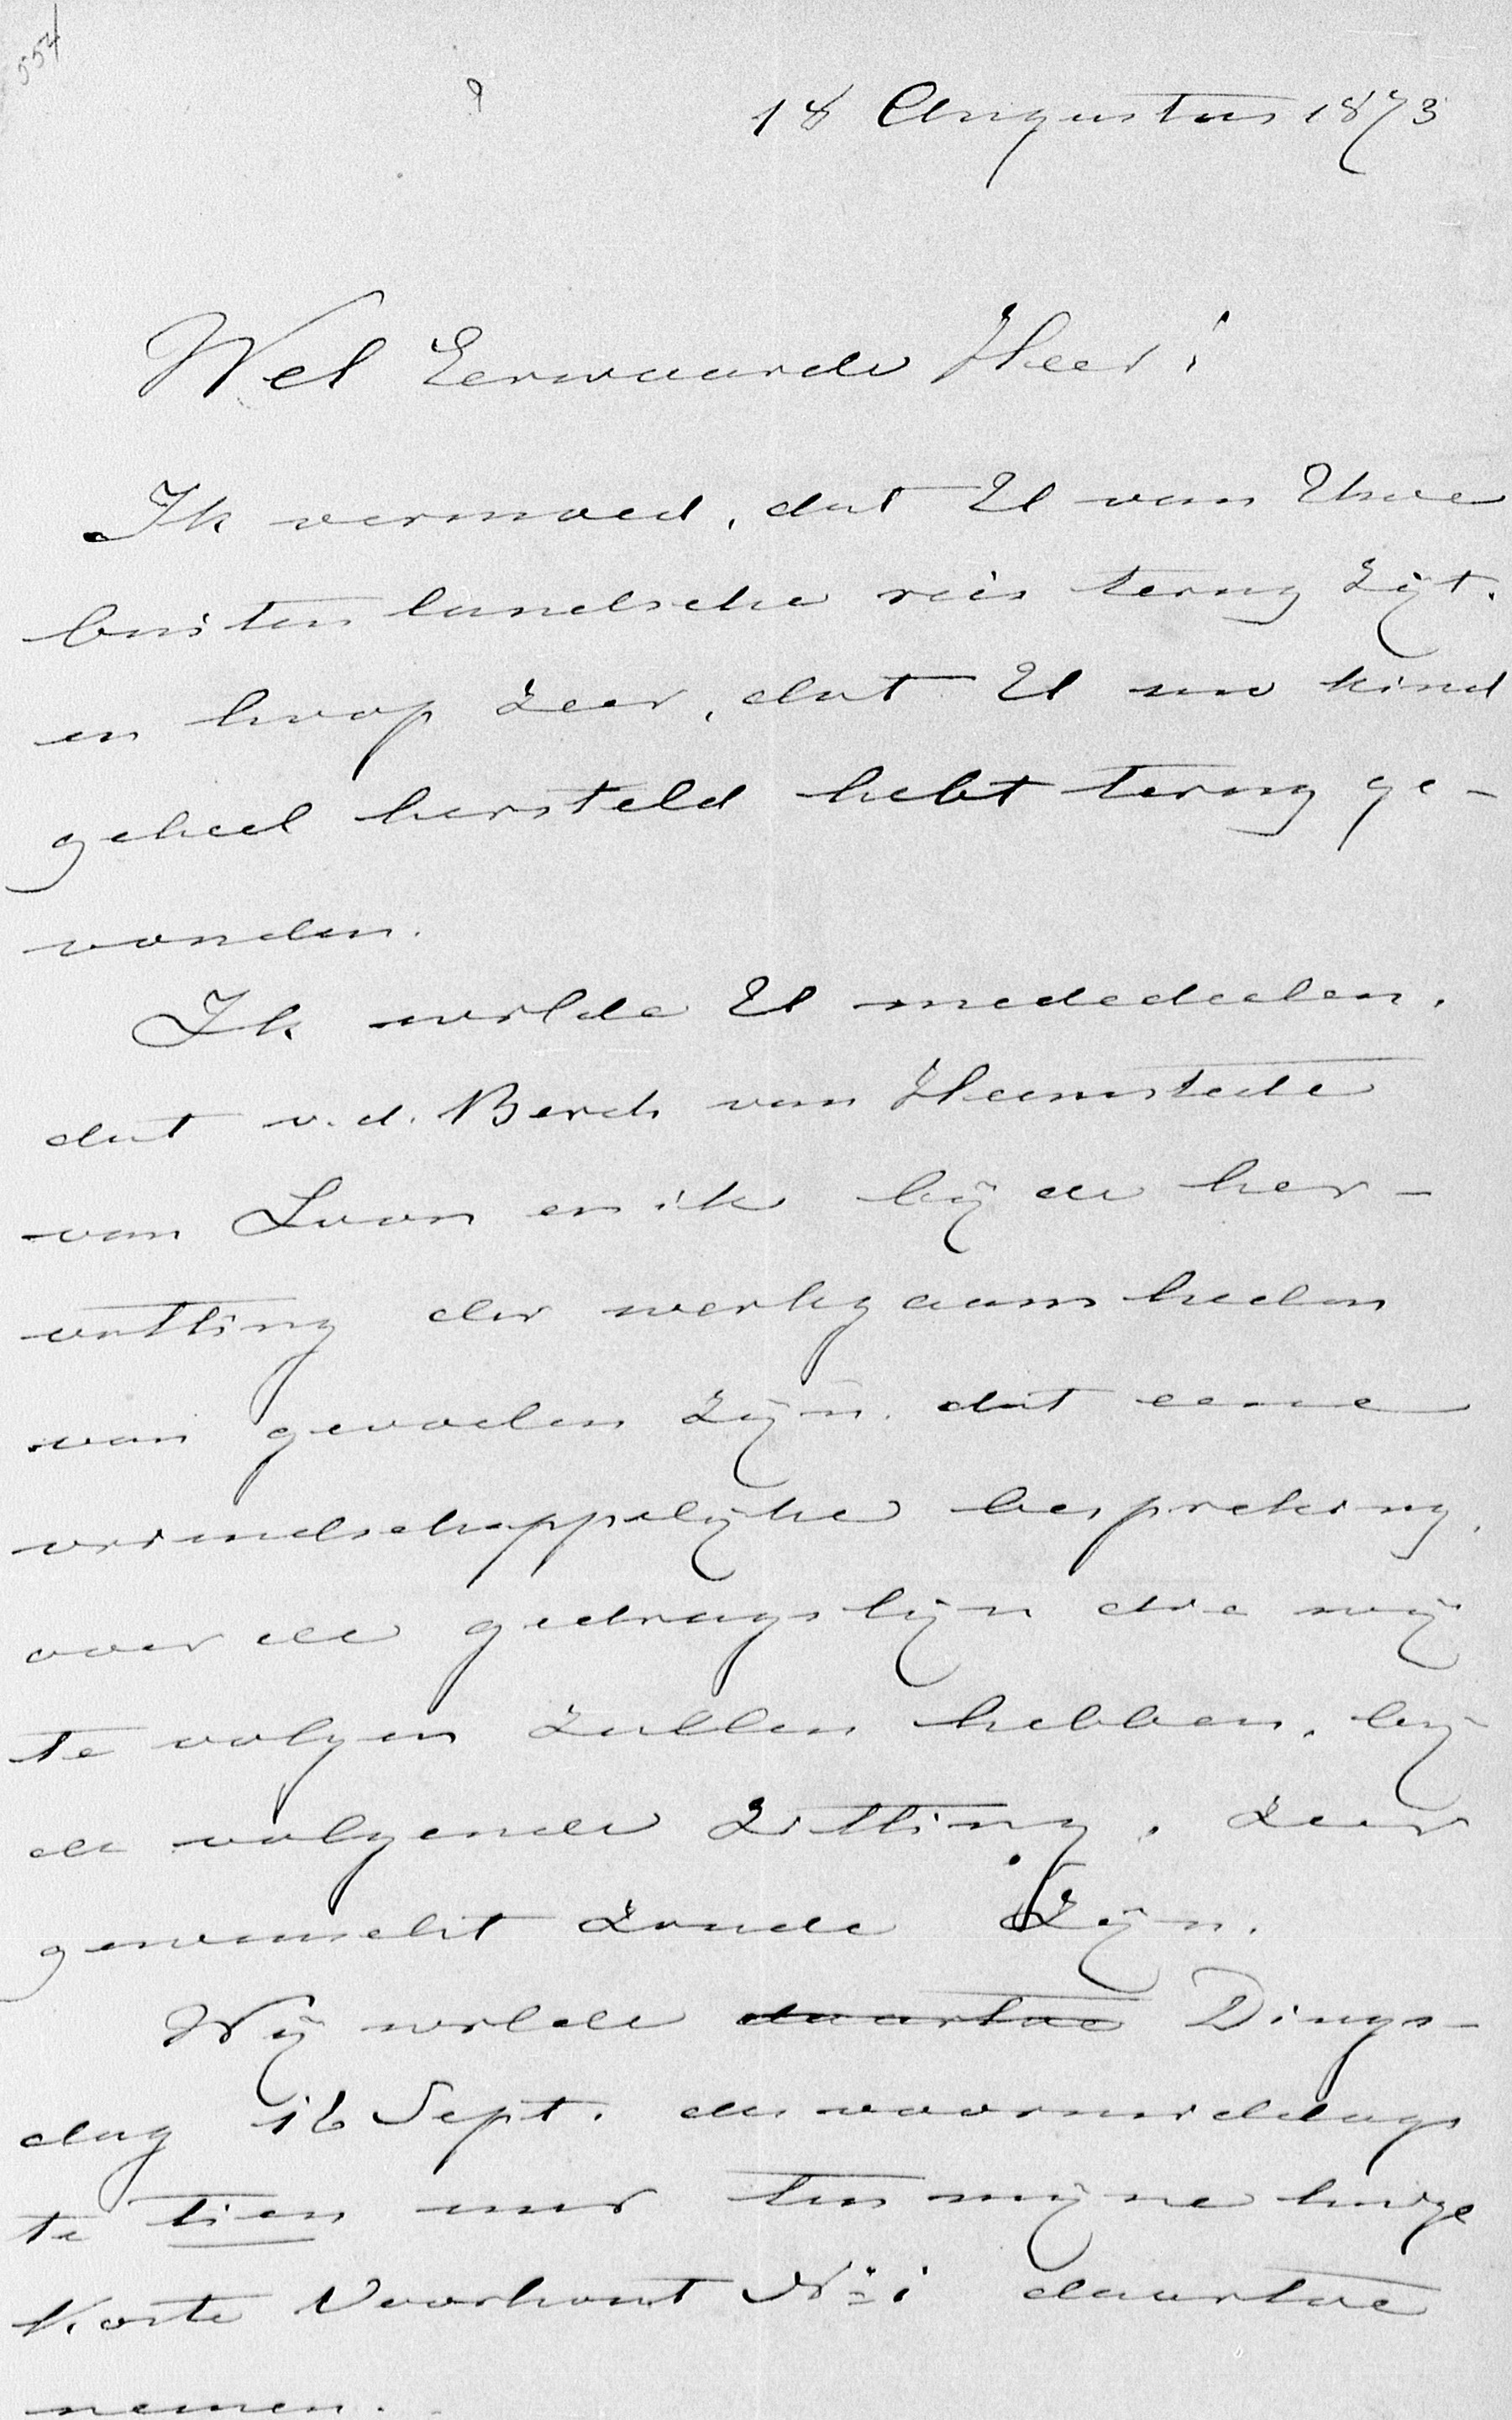 554
18 Augustus 1873
Wel Eerwaarde Heer!
Ik vermoed, dat U van Uwe
buitenlandsche reis terug zijt.
en hoop zeer, dat U uw kind
geheel hersteld hebt terug ge-
vonden.
Ik wilde U mededeelen.
dat v.d. Berch van Heemstede
van Loon en ik bij de her-
vatting der werkzaamheden
van gevoelen zijn. dat eene
vriendschappelijke bespreking.
over de gedragslijn die wij
te volgen zullen hebben, bij
de volgende zitting, zeer
gewenscht zoude zijn.
Wij wilde daartoe Dings-
dag 16 Sept. des voormiddags
te tien uur ten mijne huize
Korte Voorhout No 1 daartoe
nemen.